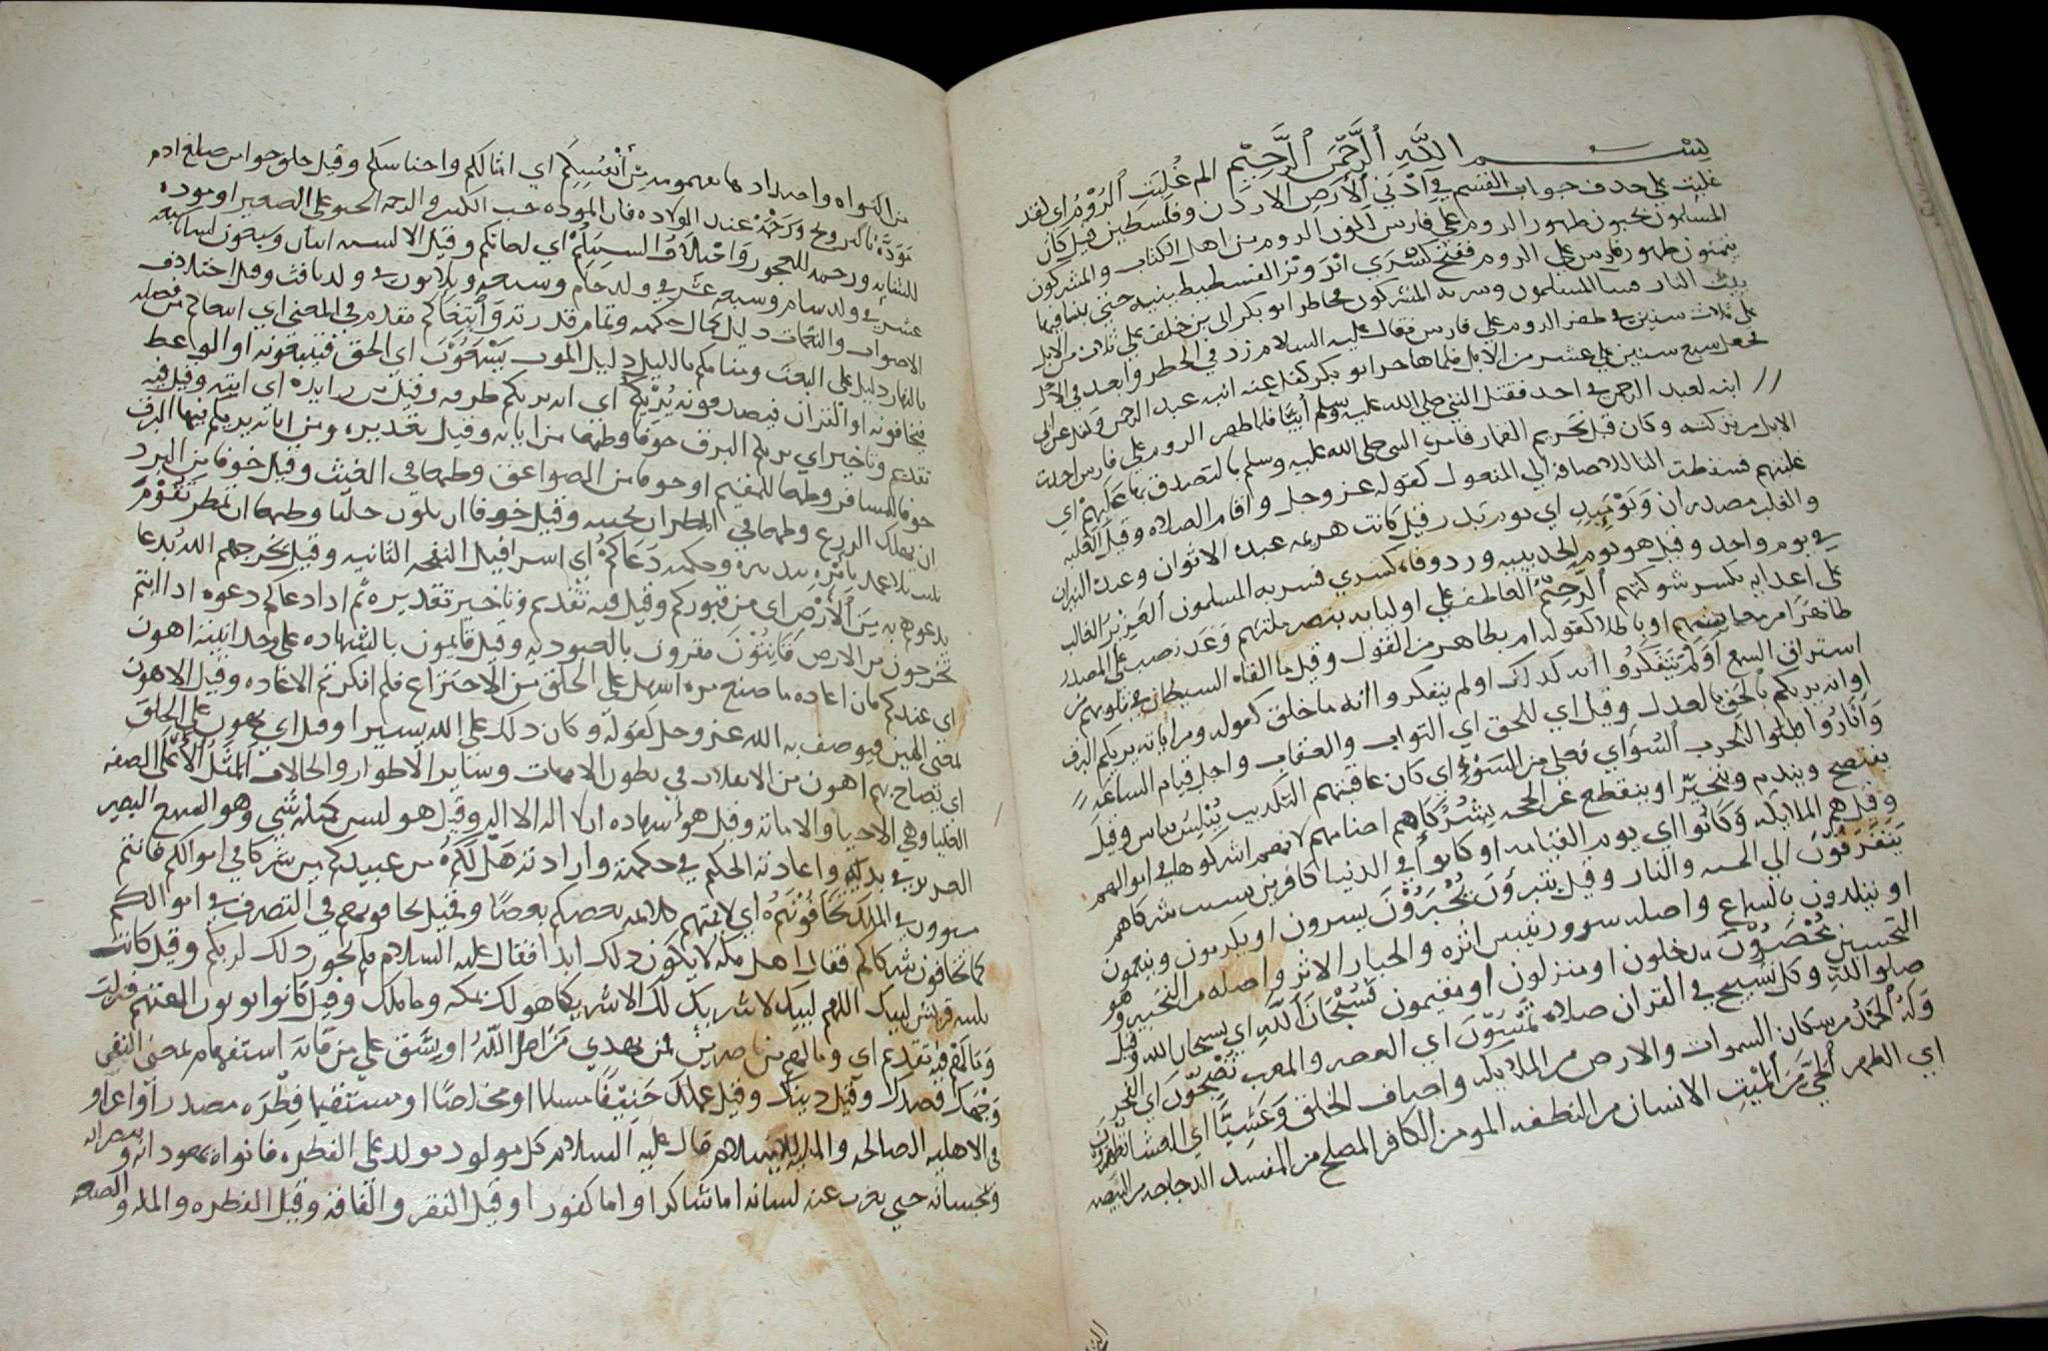 بِسْـــمِ اللَّهِ ٱلرَّحْمَٰنِ ٱلرَّحِيْمِ الم غُلِبَتِ ٱلرُّوْمُ اي لقد
غلبت على حدف جواب القسم فِي أَدْنَى ٱلْأَرْضِ الاردن وفلسطين قيل كان
المسلمون يحبون طهور الروم على فارس لكون الروم من اهل الكتاب والمشركون
يتمنون طهور فارس على الروم ففتح كسرى
بيت النار المسلمون المشركون فخاطر ابو بكر ابي بن خلف على ثلاث من الابل
على ثلاث سنين في طفر الروم على فارس فقال عليه السلام زد في الخطر وابعد في الاجل
فجعل سبع سنين على عشر من الابل فلما هاجر ابو بكر كفل عنه ابنه عبد الرحمن
ابنه لعبد الرحمن في احد فقتل النبي صلى الله عليه وسلم أبيّا فلما طهر الروم على فارس اخذت
الابل من تركته وكان قبل تحريم القمار فامر النبي صلى الله عليه وسلم بالتصدق بها غَلَبِهِمْ اي
غلبتهم فسقطت التا للاضافه الى المفعول كقوله عز وجل واقام الصلاه وقيل الغلبه
والغلب مصدران وَيَوْمَئِذٍ اي يوم بدر قيل كانت هزيمه عبده الاوثان وعبده النيران
في يوم واحد وقيل هو يوم الحديبيه كسري فسر به المسلمون ٱلْعَزِيْزُ الغالب
على اعدايه بكسر شوكتهم ٱلرَّحِيْمُ العاطف على اوليايه بنصر ملتهم وَعْدَ نصب على المصدر
طَاهِرًا امر معايشهم او باطلا كقوله ام بطاهر من القول وقيل ما القاه الشيطان
استراق السمع أَوَلَمْ يَتَفَكَّرُوا انه كذلك اولم يتفكروا انه ما خلق كقوله ومن اياته يريكم البرق
او انه يريكم بِٱلْحَقِّ بالعدل وقيل اي للحق اي الثواب والعقاب واجل قيام الساعه
وَأَثَارُوا قلبوا للحرث ٱلسُّوْأَى فعلى من السَّوْءِ اي كان عاقبتهم التكذيب يُبْلِسُ يياس وقيل
يفتضح ويندم ويتحيّر او ينقطع عن الحجه بِشُرَكَائِهِمْ اصنامهم لانهم اشركوها في اموالهم
وقيل هم الملايكه وَكَانُوا اي يوم القيامه او كانوا في الدنيا كافرين بسبب شركاهم
يَتَفَرَّقُوْنَ الى الجنه والنار وقيل يتبرؤن يُحْبَرُوْنَ يسرون او يكرمون وينعمون
او يتلذذون بالسماع واصله سرور تبين اثره والحبار الاثر واصله من التحبير وهو
التحسين مُحْضَرُوْنَ يدخلون او منزلون او مقيمون فَسُبْحَانَ ٱللَّهِ اي تسبحان الله وقيل
صلو الله وكل تسبيح في القران صلاه تُمْسُوْنَ اي العصر والمغرب تُصْبِحُوْنَ اي الفجر
وَلَهُ ٱلْحَمْدُ من سكان السموات والارض من الملايكه واصناف الخلق وَعَشِيًّا اي العشا تُظْهِرُوْنَ
اي الطهر ٱلْحَيَّ مِنَ ٱلْمَيِّتِ الانسان من النطفه المومن من الكافر المصلح من المفسد الدجاجه من البيضه
من النواه واضداد ها مِنْ أَنْفُسِكُمْ اي امثالكم واجناسكم وقيل خلق حوا من ضلع ادم
مَوَدَّةً وَرَحْمَةً عند الولاده قال الموده حب الكبير والرحمه الحنو على الصغير او موده
للشابه ورحمه للعجوز وَاخْتِلَافُ أَلْسِنَتِكُمْ اي لغاتكم وقيل الالسنه اثنان وسبعون لسانا تسعه
عشر في ولد سام وسبعه عشر في ولد حام وسته وثلاثون في ولد يافث وقيل اختلاف
الاصوات والنغمات دليل كمال حكمته وتمام قدرته وَٱبْتِغَاؤُكُمْ مقدم في المعنى اي ابتغاكم من فضله
بالنهار دليل على البعث ومنامكم بالليل دليل الموت يَسْمَعُوْنَ اي الحق فيتبعونه او الواعط
فيخافونه او القران فيصدقونه يُرِيْكُمُ اي ان يريكم وقيل ايته وقيل فيه
تقديم وتاخير اي يريكم البرق خوفا وطمعا من اياته وقيل تقديره ومن اياته يريكم فيها البرق
خوفا للمسافر وطمعا للمقيم او خوفا من الصواعق وطمعا في الغيث وقيل خوفا من البرد
ان يهلك الزرع وطمعا في المطر ان يحييه وقيل خوفا ان يكون خلّبا وطمعا ان يمطر تَقُوْمَ
بلا عمد بِأَمْرِهِ وحكمه دَعَاكُمْ اي اسرافيل النفخه الثانيه وقيل يخرجهم الله بدعا
يدعوهم به مِنَ ٱلْأَرْضِ اي من قبوركم وقيل فيه تقديم وتاخير تقديره ثم اذا دعاكم دعوه اذا انتم
تخرجون من الارض قَانِتُوْنَ مقرون بالعبوديه وقيل قايمون بالشهاده على وحدانيته اهون
اي عندكم فان اعاده ما صنع مره اسهل على الخلق من الاختراع فلم انكرتم الاعاده وقيل الاهون
بمعنى الهين فيوصف به الله عز وجل كقوله وكان ذلك على الله يسيرا وقيل اي يهون على الخلق
اي يصاح بهم اهون من الانقلاب في بطون الامهات وساير الاطوار والحالات ٱلْمَثَلُ ٱلْأَعْلَى الصفه
العليا وهي الاحيا والاماته وقيل هو شهاده ان لا اله الا الله وقيل هو ليس كمثله شي وهو السميع البصير
العزيز في بدئه واعادته الحكيم في حكمته وارادته هَلْ لَكُمْ من عبيدكم من شركا في اموالكم فانتم
سوون في الملك تَخَافُوْنَهُمْ اي لايمتهم كلايمه بعضكم بعضا وقيل تخافونهم في التصرف في اموالكم
كما تخافون شركاكم فقال اهل مكه لا يكون ذلك ابدا فقال عليه السلام فلم يجوز ذلك لربكم وقيل كانت
تلبيه قريش لبيك اللهم لبيك لا شريك لك الا شريكا هو لك تملكه وما ملك وقيل كانوا يورثون الهتهم فنزلت
وَمَا لَهُمْ فيه تقديم اي وما لهم من ناصرين فمن يهدي مَنْ أَضَلَّ ٱللَّهُ او يشق على من فاته استفهام بمعنى النفي
وَجْهَكَ قصدك وقيل دينك وقيل عملك حَنِيْفًا مسلما او مخلصا او مستقيما فِطْرَه مصدر او اغرا
في الاهليه الصالحه والملبيه للاسلام قال عليه السلام كل مولود يولد على الفطره فابواه يهودانه وينصرانه
ويمجسانه حتى يعرب عنه لسانه اما شاكرا واما كفورا وقيل الفقر والفاقه وقيل الفطره والمله والصبغه